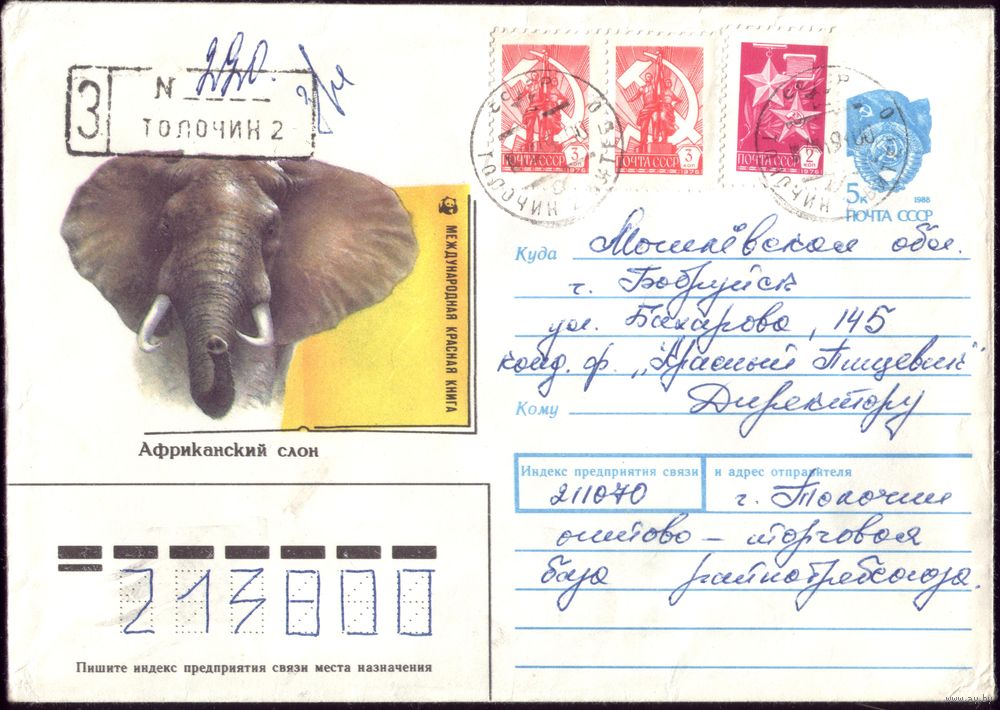 З
N 220.
ТОЛОЧИН 2
МЕЖДУНАРОДНАЯ КРАСНАЯ КНИГА
Африканский слон
ПОЧТА СССР 3 коп 1976
ПОЧТА СССР 3 коп 1976
ПОЧТА СССР 2 коп 1976
5к 1988
ПОЧТА СССР
Куда Могилёвская обл.
г. Бобруйск
ул. Бахарова, 145
конд. ф. „Красный Пищевик"
Кому Директору
Индекс предприятия связи и адрес отправителя
211070 г. Толочин
оптово - торговая
база райпотребсоюза.
213800
Пишите индекс предприятия связи места назначения
www.ay.by